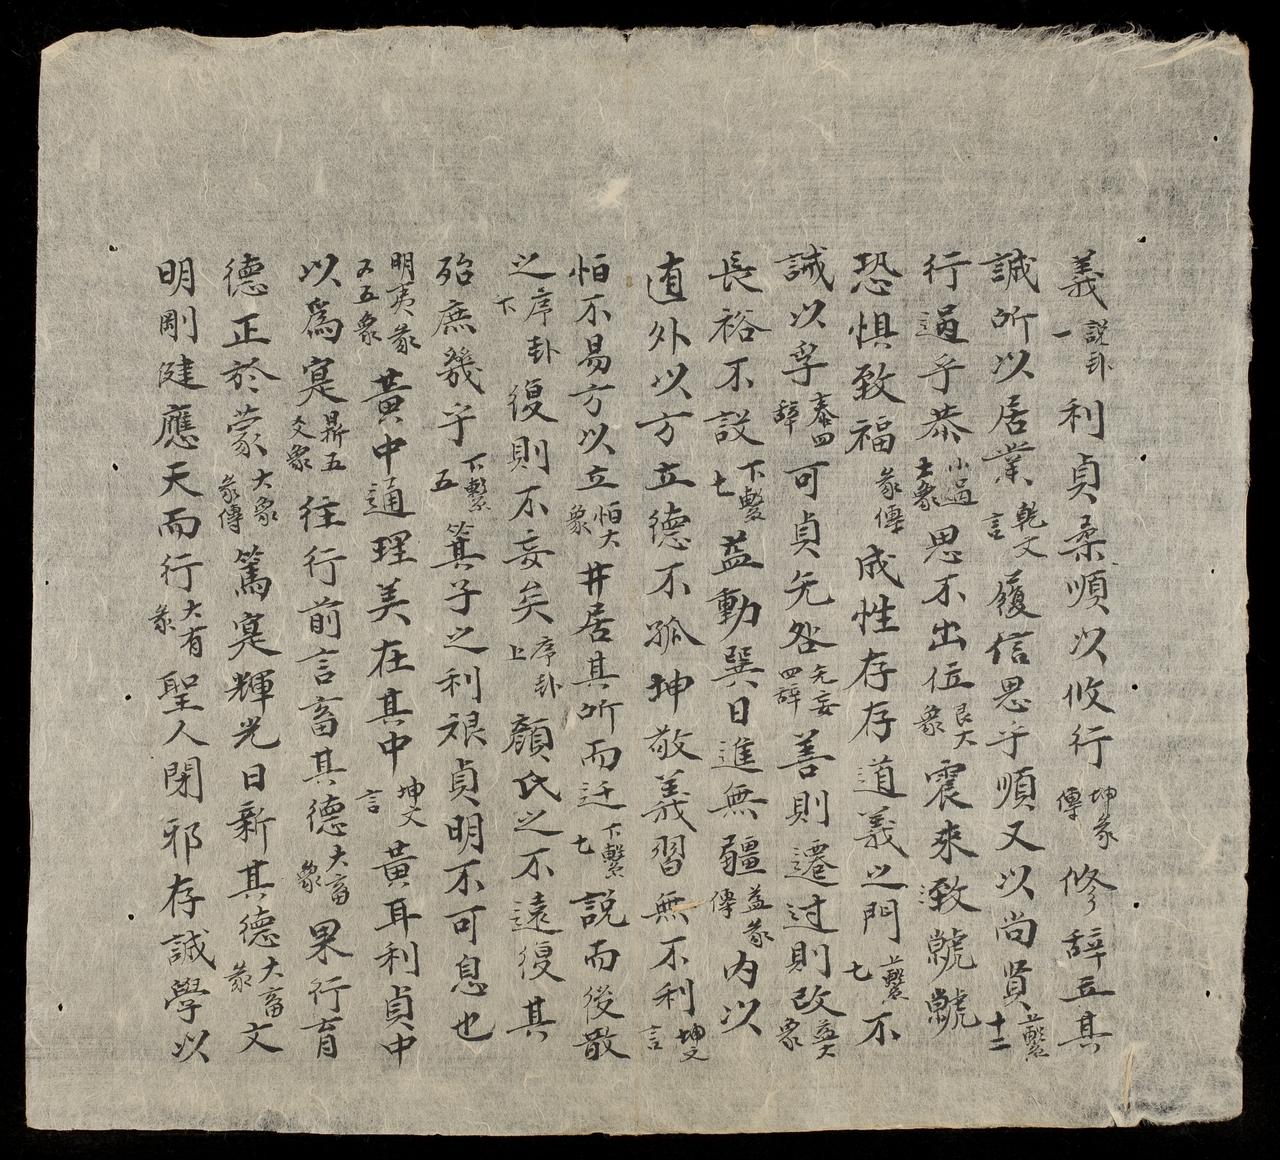 義說卦一利貞柔順以攸行坤彖傳修辭立其
誠所以居業乾文言履信思乎順又以尚賢上繫十二
行過乎恭小過大象思不出位艮大象震來致虩虩
恐懼致福彖傳成性存存道義之門上繫七不
誡以孚泰四辭可貞无咎无妄四辞善則遷过則改益大象
長裕不設下繫七益動巽日進無疆益彖傳內以
直外以方立德不孤坤敬義習無不利坤文言
恒不易方以立恒大象井居其所而迁下繫七說而後散
之序卦下復則不妄矣序卦上顏氏之不遠復其
殆庶幾乎下繫五箕子之利艱貞明不可息也
明夷彖又五象黃中通理美在其中坤文言黃耳利貞中
以爲寔鼎五爻象往行前言畜其德大畜象果行育
德正於蒙大象彖傳篤寔輝光日新其德大畜彖文
明剛健應天而行大有彖聖人閑邪存誠學以